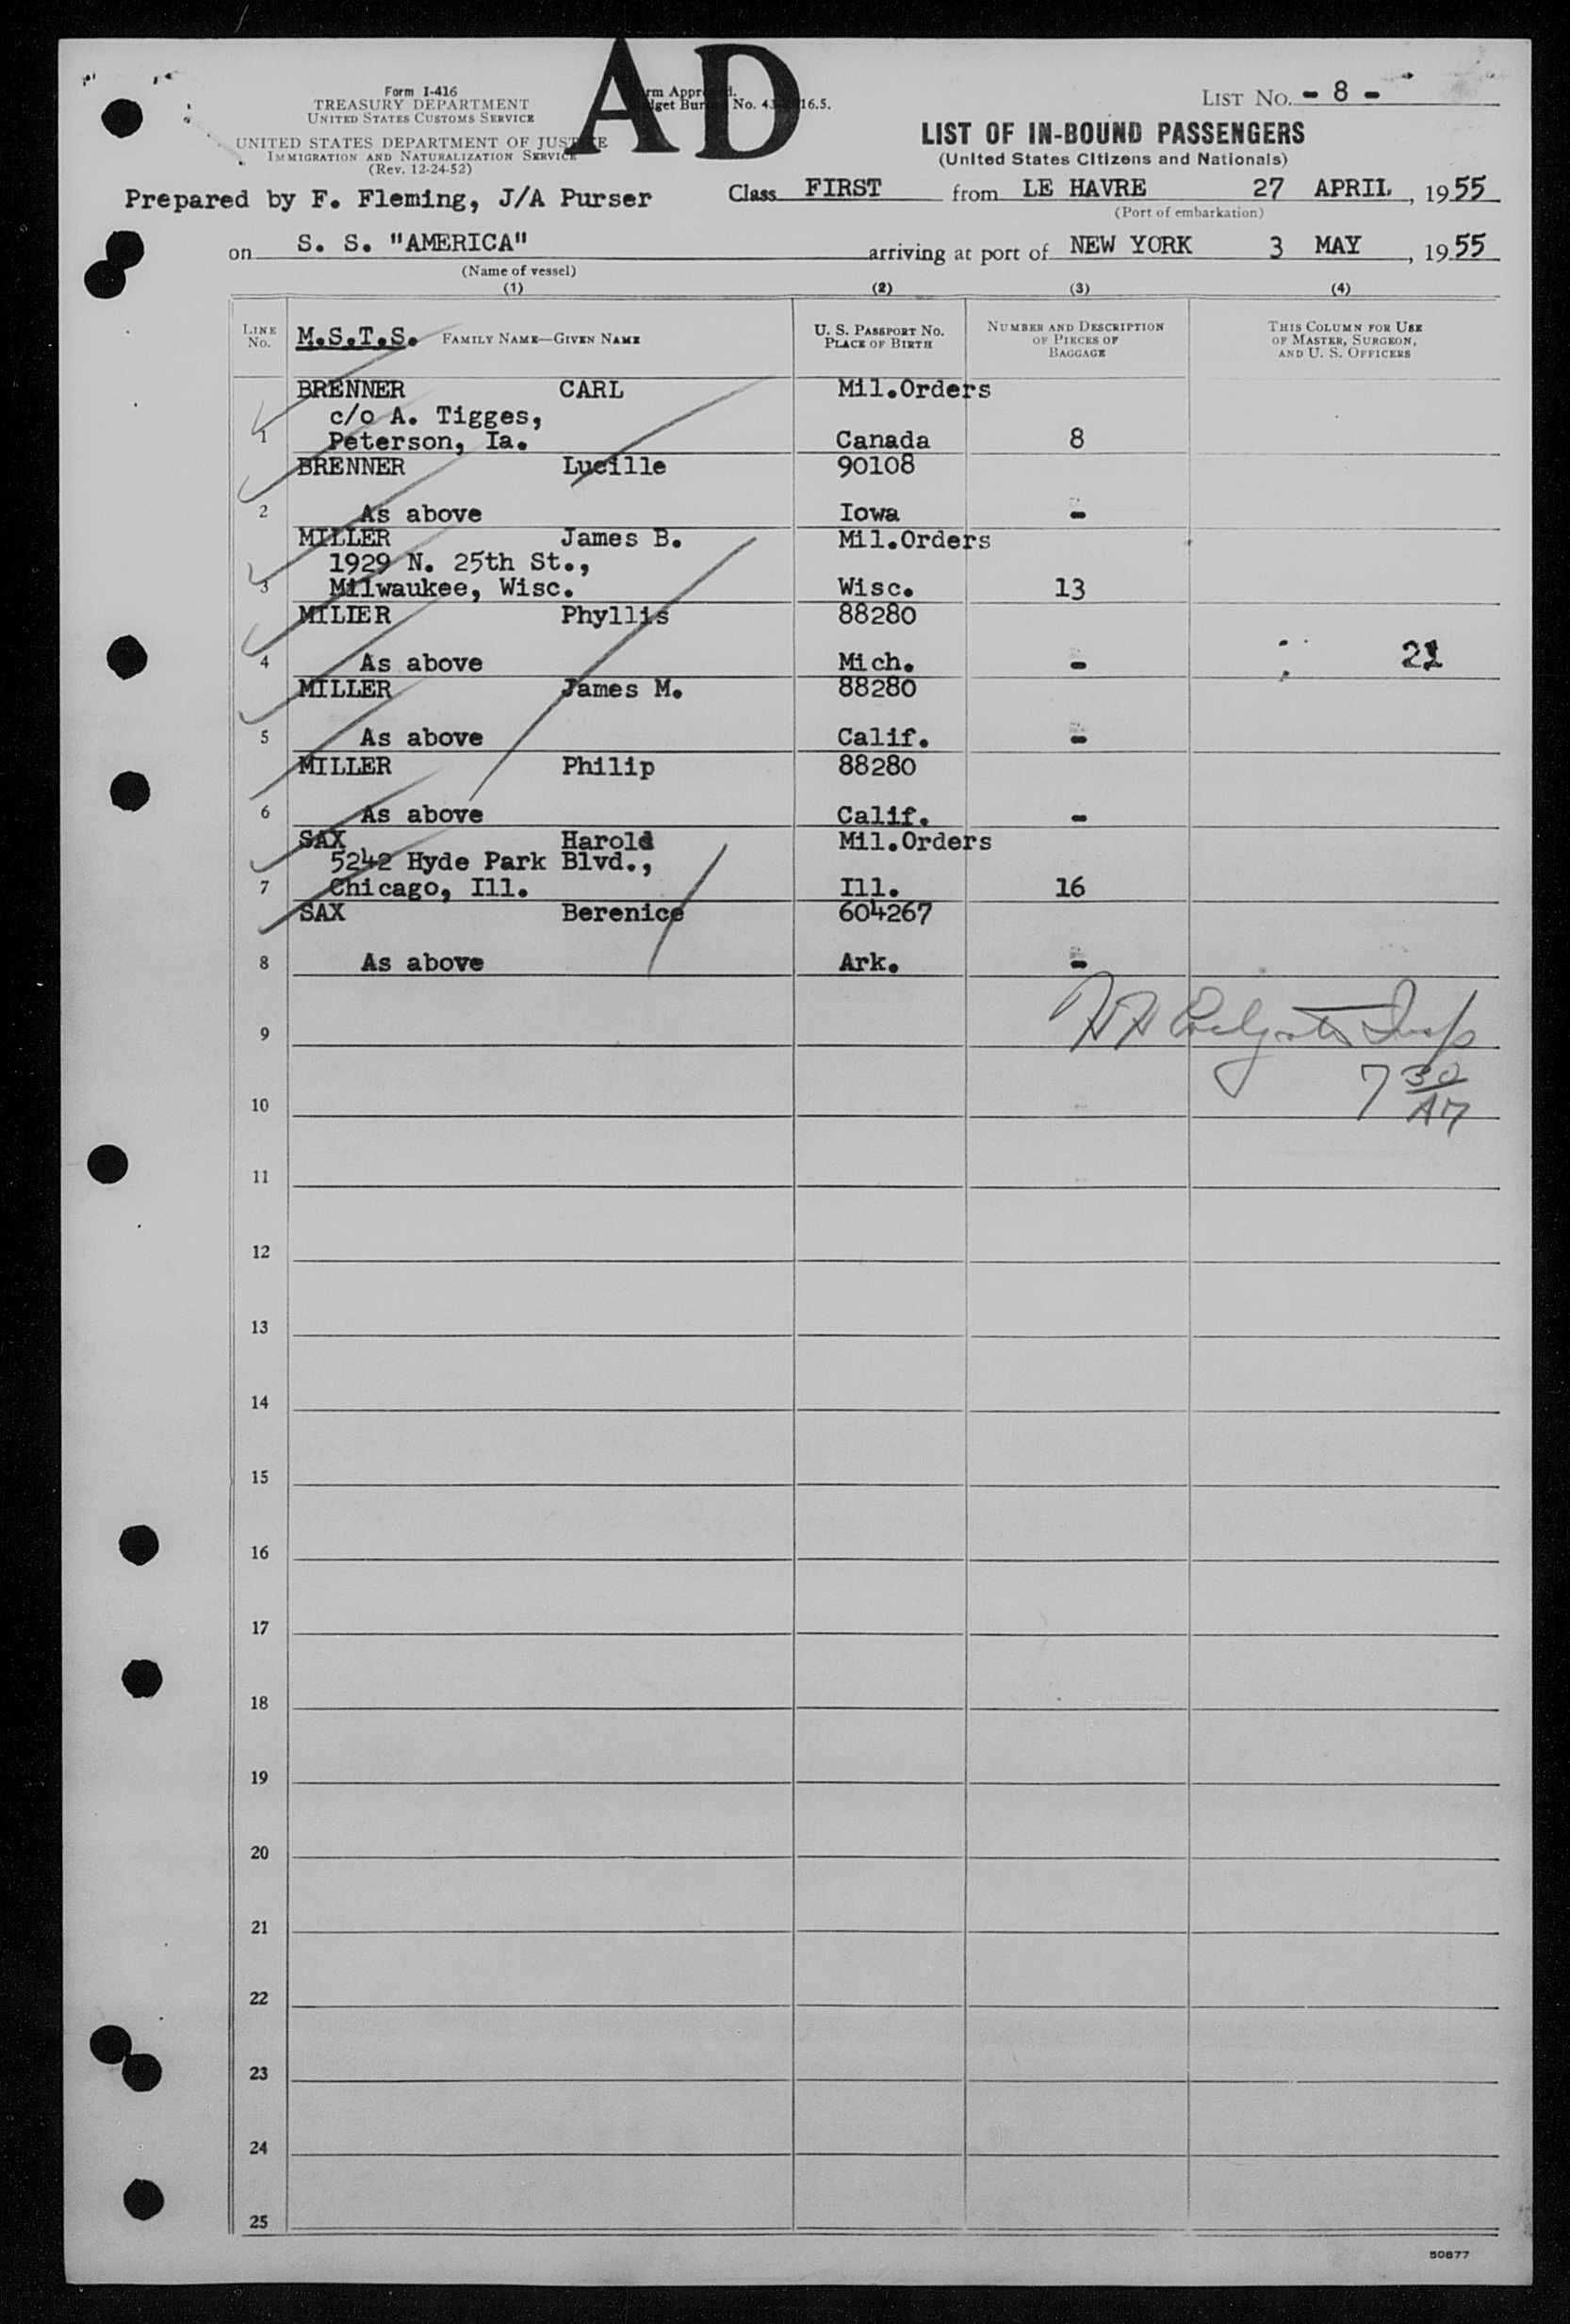 AD
Form I-416
TREASURY DEPARTMENT
UNITED STATES CUSTOMS SERVICE
UNITED STATES DEPARTMENT OF JUSTICE
IMMIGRATION AND NATURALIZATION SERVICE
(Rev. 12-24-52)
LIST NO. - 8 -
LIST OF IN-BOUND PASSENGERS
(United States Citizens and Nationals)
Prepared by F. Fleming, J/A Purser Class FIRST from LE HAVRE 27 APRIL, 1955
(Port of embarkation)
on S. S. "AMERICA" arriving at port of NEW YORK 3 MAY, 1955
(Name of vessel)
(1) (2) (3) (4)
LINE NO. M.S.T.S. FAMILY NAME—GIVEN NAME U. S. PASSPORT NO. PLACE OF BIRTH NUMBER AND DESCRIPTION OF PIECES OF BAGGAGE THIS COLUMN FOR USE OF MASTER, SURGEON, AND U. S. OFFICERS
BRENNER CARL Mil.Orders
c/o A. Tigges,
1 Peterson, Ia. Canada 8
BRENNER Lucille 90108
2 As above Iowa -
MILLER James B. Mil.Orders
1929 N. 25th St.,
3 Milwaukee, Wisc. Wisc. 13
MILIER Phyllis 88280
4 As above Mich. -
MILLER James M. 88280
5 As above Calif. -
MILLER Philip 88280
6 As above Calif. -
SAX Harold Mil.Orders
5242 Hyde Park Blvd.,
7 Chicago, Ill. Ill. 16
SAX Berenice 604267
8 As above Ark. -
9
7 30
AM
10
11
12
13
14
15
16
17
18
19
20
21
22
23
24
25
50877